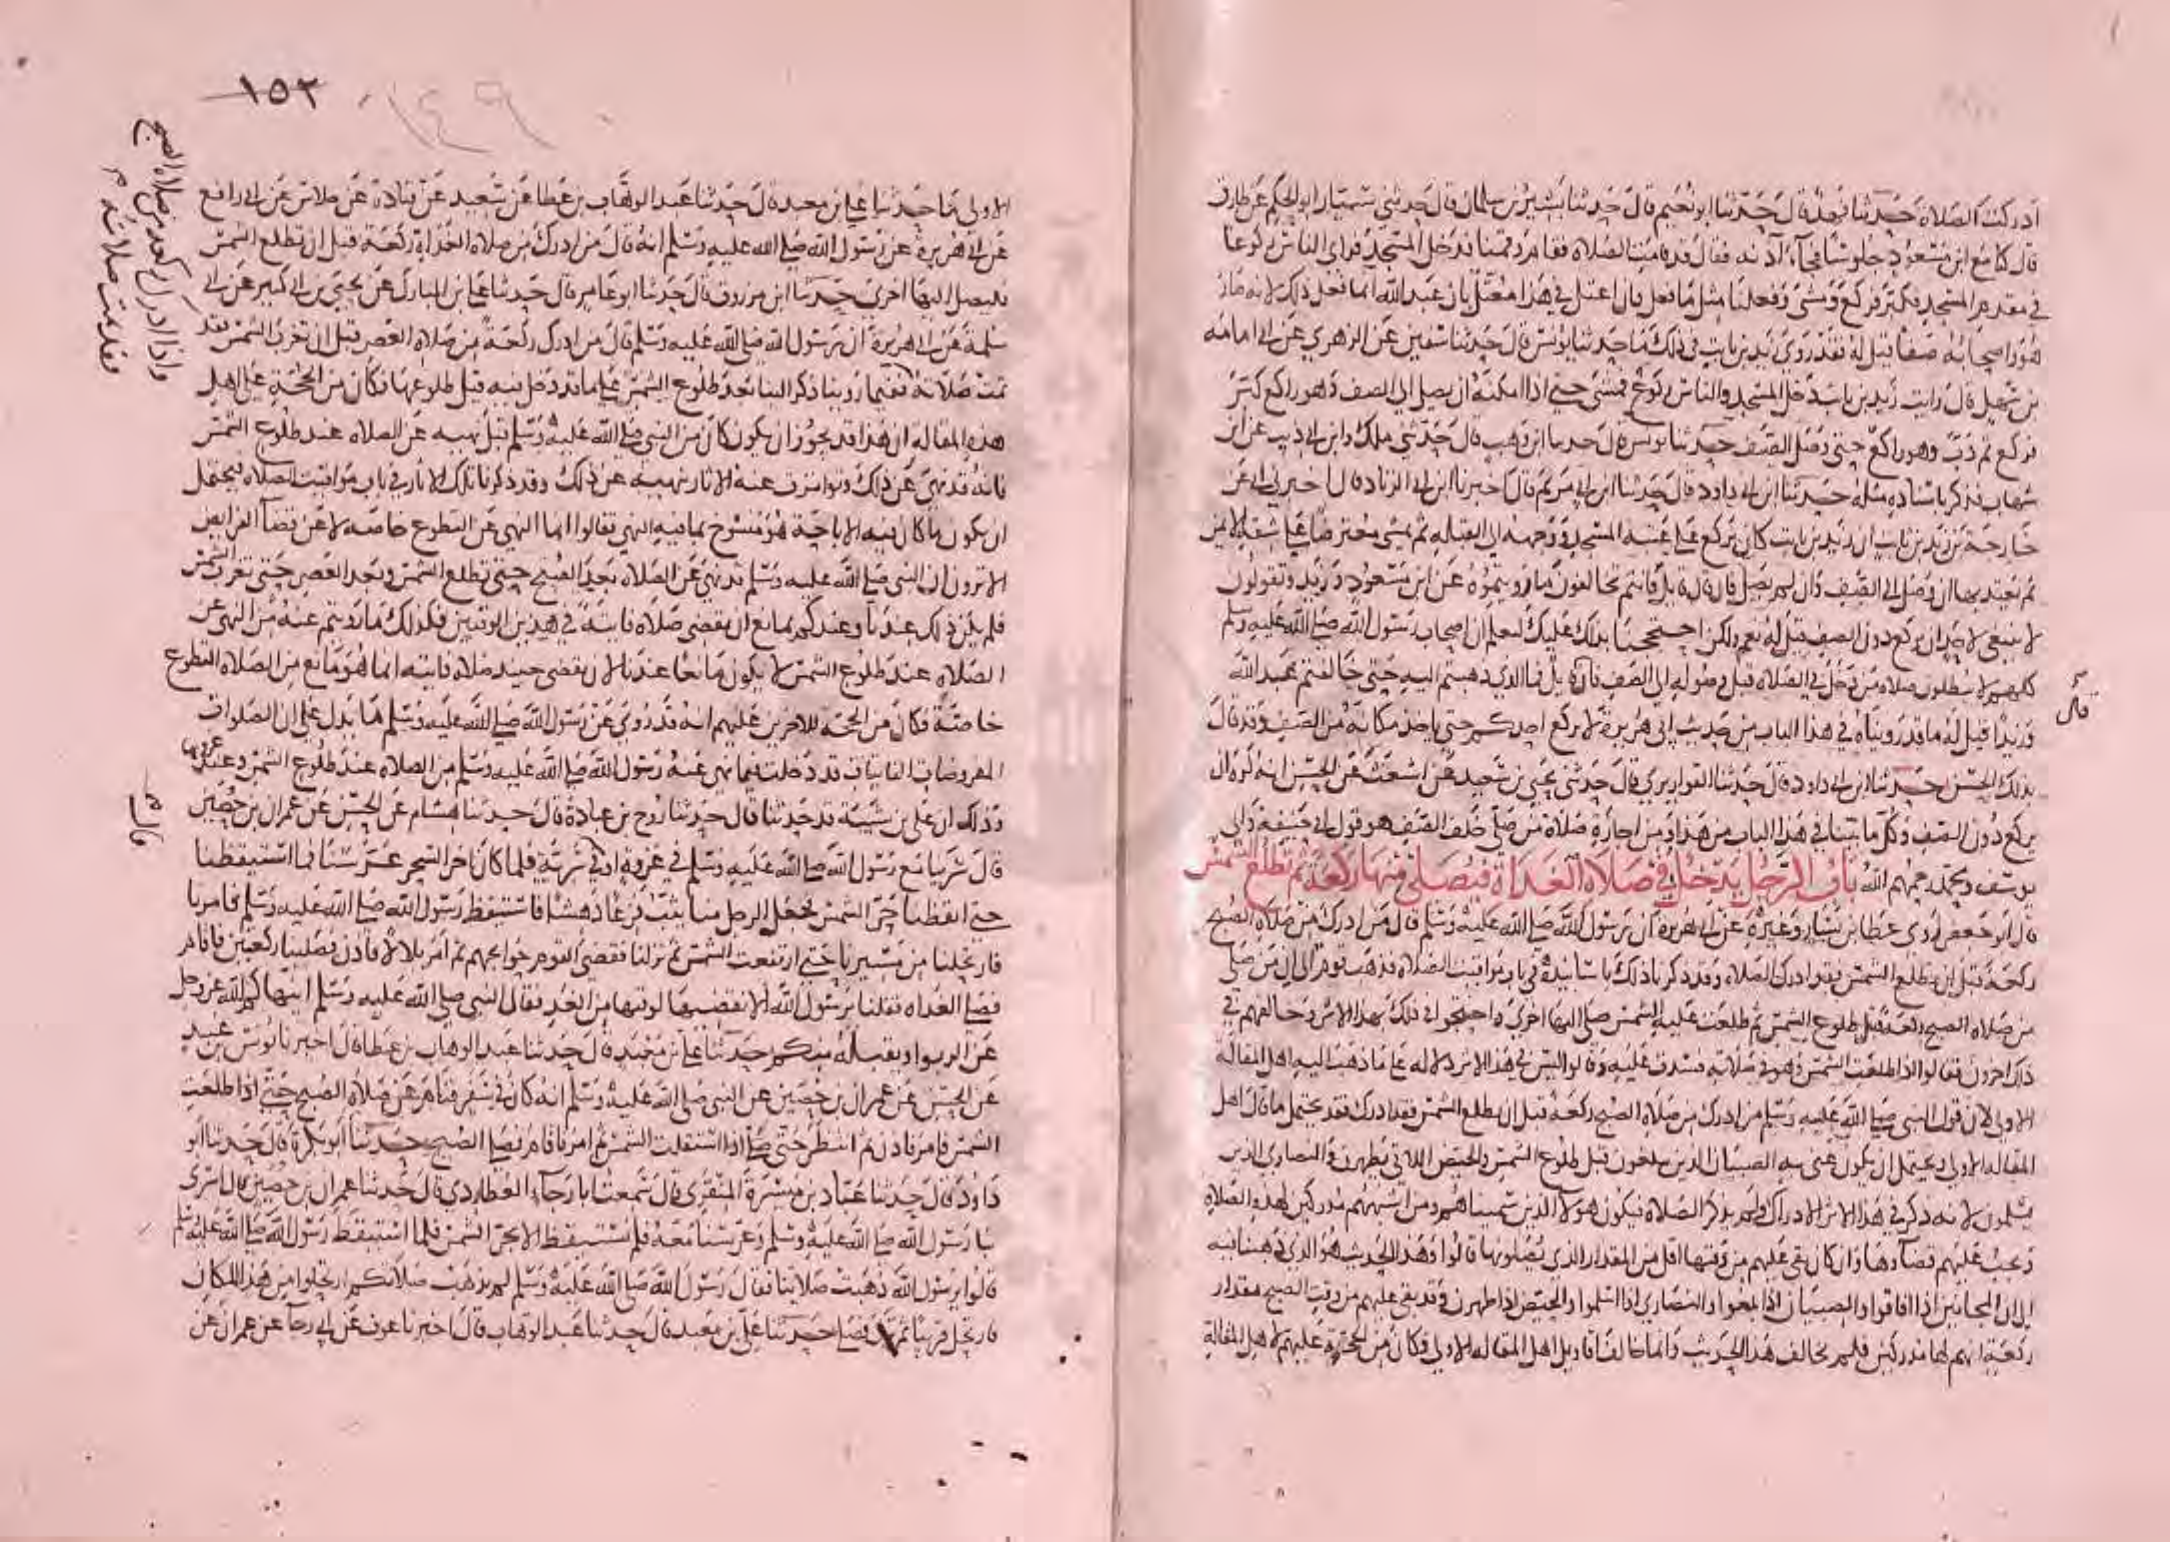 ادركت الصلاة حدثنا فهد قال حدثنا ابو نعيم قال حدثنا بشير بن سلمان قال حدثني سيار ابو الحكم عن طارق
قال كنا مع ابن مسعود جلوسا فجاء آذنه فقال قد قامت الصلاة فقام وقمنا فدخل المسجد فراى الناس ركوعا
في مقدم المسجد فكبر فركع ومشى وفعلنا مثل ما فعل فان اعتل في هذا معتل بان عبد الله انما فعل ذلك لانه صار
هو واصحابه صفا قيل له فقد روي زيد بن ثابت في ذلك ما حدثنا يونس قال حدثنا سفين عن الزهري عن ابي امامه
بن سهل قال رايت زيد بن ثابت دخل المسجد والناس ركوع فمشى حتى اذا امكنه ان يصل الى الصف وهو راكع كبر
فركع ثم دب وهو راكع حتى وصل الصف حدثنا يونس قال حدثنا ابن وهب قال حدثني ملك وابن ابي ذيب عن ابن
شهاب فذكر باسناده مثله حدثنا ابن ابي داود قال حدثنا ابن ابي مريم قال اخبرنا ابن ابي الزناد قال اخبرني ابي عن
خارجة بن زيد بن ثابت ان زيد بن ثابت كان يركع على عتبه المسجد ووجهه الى القبله ثم يمشي معترضا على شقه الايمن
ثم يعتد بها ان وصل الى الصف وان لم يصل فان قال قايل فانتم تخالفون ما رويتموه عن ابن مسعود وزيد وتقولون
لا ينبغي لاحد ان يركع دون الصف قيل له نعم ولكن احتججنا بذلك عليك لتعلم ان اصحاب رسول الله صلى الله عليه وسلم
كلهم لا يبطلون صلاة من دخل في الصلاه قبل وصوله الى الصف فان قايل فما الذي ذهبتم اليه حتى خالفتم عبد الله
قال
وزيدا قيل له ما قد رويناه في هذا الباب من حديث ابي هريرة لا يركع احدكم حتى ياخذ مكانه من الصف وقد قال
بذلك الحسن حدثنا ابن ابي داود قال حدثنا القواريري قال حدثني يحيى بن سعيد عن اشعث عن الحسن انه كره ان
يركع دون الصف وكل ما بينا في هذا الباب من هذا ومن اجازة صلاة من صلى خلف الصف هو قول ابي حنيفة وابي
يوسف ومحمد رحمهم الله باب الرجل يدخل في صلاة الغداة فيصلي منها ركعة ثم تطلع الشمس
قال ابو جعفر روى عطا بن يسار وغيره عن ابي هريرة ان رسول الله صلى الله عليه وسلم قال من ادرك من صلاة الصبح
ركعة قبل ان تطلع الشمس فقد ادرك الصلاة وقد ذكرنا ذلك باسانيده في باب مواقيت الصلاه فذهب قوم الى ان من صلى
من صلاة الصبح ركعة قبل طلوع الشمس ثم طلعت عليه الشمس صلى اليها اخرى واحتجوا في ذلك بهذا الاثر وخالفهم في
ذلك اخرون فقالوا اذا طلعت الشمس وهو في صلاته فسدت عليه وقالوا ليس في هذا الاثر دلاله على ما ذهب اليه اهل المقالة
الاولى لان قول النبي صلى الله عليه وسلم من ادرك من صلاة الصبح ركعة قبل ان تطلع الشمس فقد ادرك فقد يحتمل ما قال اهل
المقاله الاولى ويحتمل ان يكون عنى به الصبيان الذين يبلغون قبل طلوع الشمس والحيض اللاتي يطهرن والنصارى الذين
يسلمون لانه ذكر في هذا الاثر الادراك ولم يذكر الصلاة فيكون هولا الذين سميناهم ومن اشبههم مدركين لهذه الصلاة
وعبب عليهم قضاوها وان كان بقي عليهم من وقتها اقل من المقدار الذي يصلونها قالوا وهذا الحديث هو الذي ذهبنا فيه
الى ان المجانين اذا افاقوا والصبيان اذا بلغوا والنصارى اذا اسلموا والحيض اذا طهرن وقد بقي عليهم من وقت الصبح مقدار
ركعة انهم لها مدركين فلم نخالف هذا الحديث وانما خالفنا تاويل اهل المقاله الاولى فكان من الحجة عليهم لاهل المقالة
١٥٢
١٤٩
الاولى ما حدثنا علي بن معبد قال حدثنا عبد الوهاب بن عطا عن سعيد عن قتادة عن خلاس عن ابي رافع
عن ابي هريرة عن رسول الله صلى الله عليه وسلم انه قال من ادرك من صلاة الغداة ركعة قبل ان تطلع الشمس
فليصل اليها اخرى حدثنا ابن مرزوق قال حدثنا ابو عامر قال حدثنا علي بن المبارك عن يحيى بن ابي كثير عن ابي
سلمة عن ابي هريرة ان رسول الله صلى الله عليه وسلم قال من ادرك ركعة من صلاة العصر قبل ان تغرب الشمس فقد
تمت صلاته ففيما روينا ذكر البنا بعد طلوع الشمس على ما قد دخل فيه قبل طلوعها فكان من الحجة على اهل
واذا ادرك ركعه من صلاة الصبح
فقد تمت صلاته
هذه المقالة ان هذا قد يجوز ان يكون كان من النبي صلى الله عليه وسلم قبل نهيه عن الصلاة عند طلوع الشمس
فانه قد نهى عن ذلك وتواترت عنه الاثار بنهيه عن ذلك وقد ذكرنا تلك الاثار في باب مواقيت الصلاه فيحتمل
ان يكون ما كان فيه الاباحة هو منسوخ بما فيه النهي فقالوا انما النهي عن التطوع خاصه لا عن قضا الفرايض
الا ترون ان النبي صلى الله عليه وسلم قد نهى عن الصلاة بعد الصبح حتى تطلع الشمس وبعد العصر حتى تغرب الشمس
فلم يكن ذلك عندنا وعندكم بمانع ان يقضى صلاة فايتة في هذين الوقتين فكذلك ما رويتم عنه من النهي عن
الصلاة عند طلوع الشمس لا يكون مانعا عندنا لان يقضى حينيذ صلاة فايته انما هو مانع من الصلاه التطوع
خاصة فكان من الحجه للاخرين عليهم انه قد روي عن رسول الله صلى الله عليه وسلم ما يدل على ان الصلوات
المفروضات الفايتات قد دخلت فيما نهى عنه رسول الله صلى الله عليه وسلم من الصلاه عند طلوع الشمس وعند غروبها
وذلك ان علي بن شيبة قد حدثنا قال حدثنا روح بن عبادة قال حدثنا هشام عن الحسن عن عمران بن حصين
قال
قال سرينا مع رسول الله صلى الله عليه وسلم في غزوة او في سرية فلما كان اخر السحر عرسنا فما استيقظنا
حتى ايقظنا حر الشمس فجعل الرجل منا يثب فزعا دهشا فاستيقظ رسول الله صلى الله عليه وسلم فامرنا
فارتحلنا من مسيرنا حتى ارتفعت الشمس ثم نزلنا فقضى القوم حوايجهم ثم امر بلالا فاذن فصلينا ركعتين فاقام
فصلى الغداه فقلنا يرسول الله الا نقضيها لوقتها من الغد فقال النبي صلى الله عليه وسلم اينهاكم الله عز وجل
عن الربوا ويقبله منكم حدثنا علي بن معبد قال حدثنا عبد الوهاب بن عطا قال اخبرنا يونس بن عبيد
عن الحسن عن عمران بن حصين عن النبي صلى الله عليه وسلم انه كان في سفر فنام عن صلاة الصبح حتى اذا طلعت
الشمس فامر فاذن ثم انتظر حتى اذا استقلت الشمس ثم امر فاقام فصلى الصبح حدثنا ابو بكرة قال حدثنا ابو
داود قال حدثنا عباد بن ميسرة المنقري قال سمعت ابا رجاء العطاردي قال حدثنا عمران بن حصين قال اسرى
بنا رسول الله صلى الله عليه وسلم وعرسنا معه فلم نستيقظ الا بحر الشمس فلما استيقظ رسول الله صلى الله عليه وسلم
قالوا يرسول الله ذهبت صلاتنا فقال رسول الله صلى الله عليه وسلم لم تذهب صلاتكم ارتحلوا من هذا المكان
فارتحل قريبا ثم نزل فصلى حدثنا علي بن معبد قال حدثنا عبد الوهاب قال اخبرنا عوف عن ابي رجا عن عمران عن